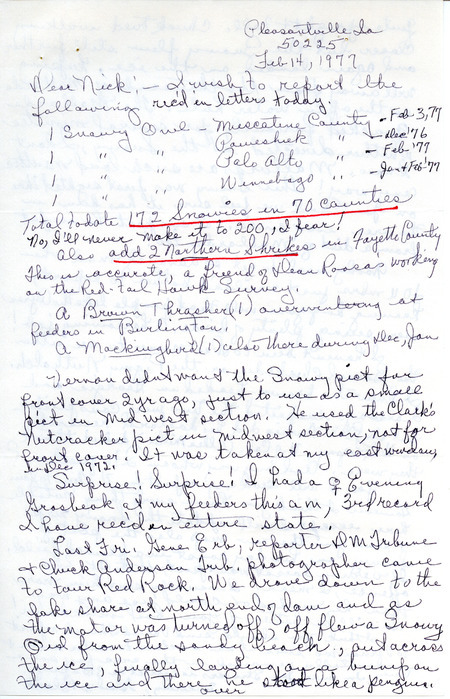 Pleasantville, Ia
50225
Feb 14, 1977
Dear Nick: - I wish to report the
following rec'd in letters today.
1 Snowy Owl - Muscatine County - Feb-3,77
1 " " Poweshiek " - Dec '76
1 " " Palo Alto " - Feb-'77
1 " " Winnebago " - Jan+Feb '77
Total to date 172 Snowies in 70 Counties
No, I'll never make it to 200, I fear!
Also add 2 Northern Shrikes in Fayette County
This is accurate, a friend of Dean Roosa's working
on the Red-Tail Hawk Survey.
A Brown Thrasher (1) overwintering at
feeders in Burlington.
A Mockingbird (1) also there during Dec, Jan
Vernon didn't want the Snowy pict for
front cover 2 yr ago, just to use as a small
pict in Midwest section. He used the Clark's
Nutcracker pict in Midwest section, not for
front cover. It was taken at my east window,
in Dec 1972.
Surprise! Surprise! I had a ♀ Evening
Grosbeak at my feeders this am, 3rd record
I have rec'd on entire state.
Last Fri. Gene Erb, reporter DM Tribune
+ Chuck Anderson Trib. photographer came
to tour Red Rock. We drove down to the
lake shore at north end of dam and as
the motor was turned off, off flew a Snowy
Owl from the sandy beach, out across
the ice, finally landing on a bump on
the ice and there he stood like a penguin.
over